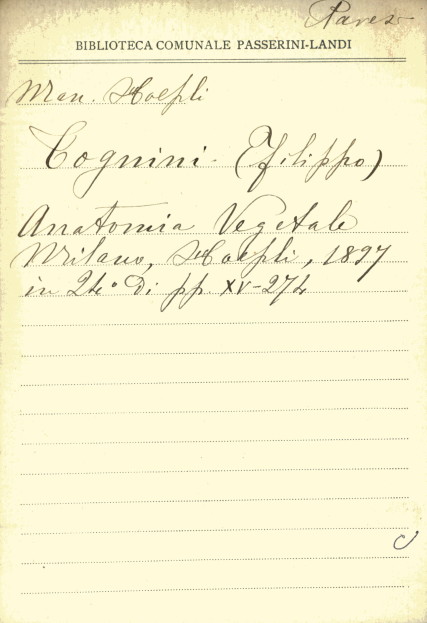 Pavesi
BIBLIOTECA COMUNALE PASSERINI-LANDI
Man. Hoepli
Tognini (Filippo)
Anatomia Vegetale
Milano, Hoepli, 1897
in 24° di pp. XV-274